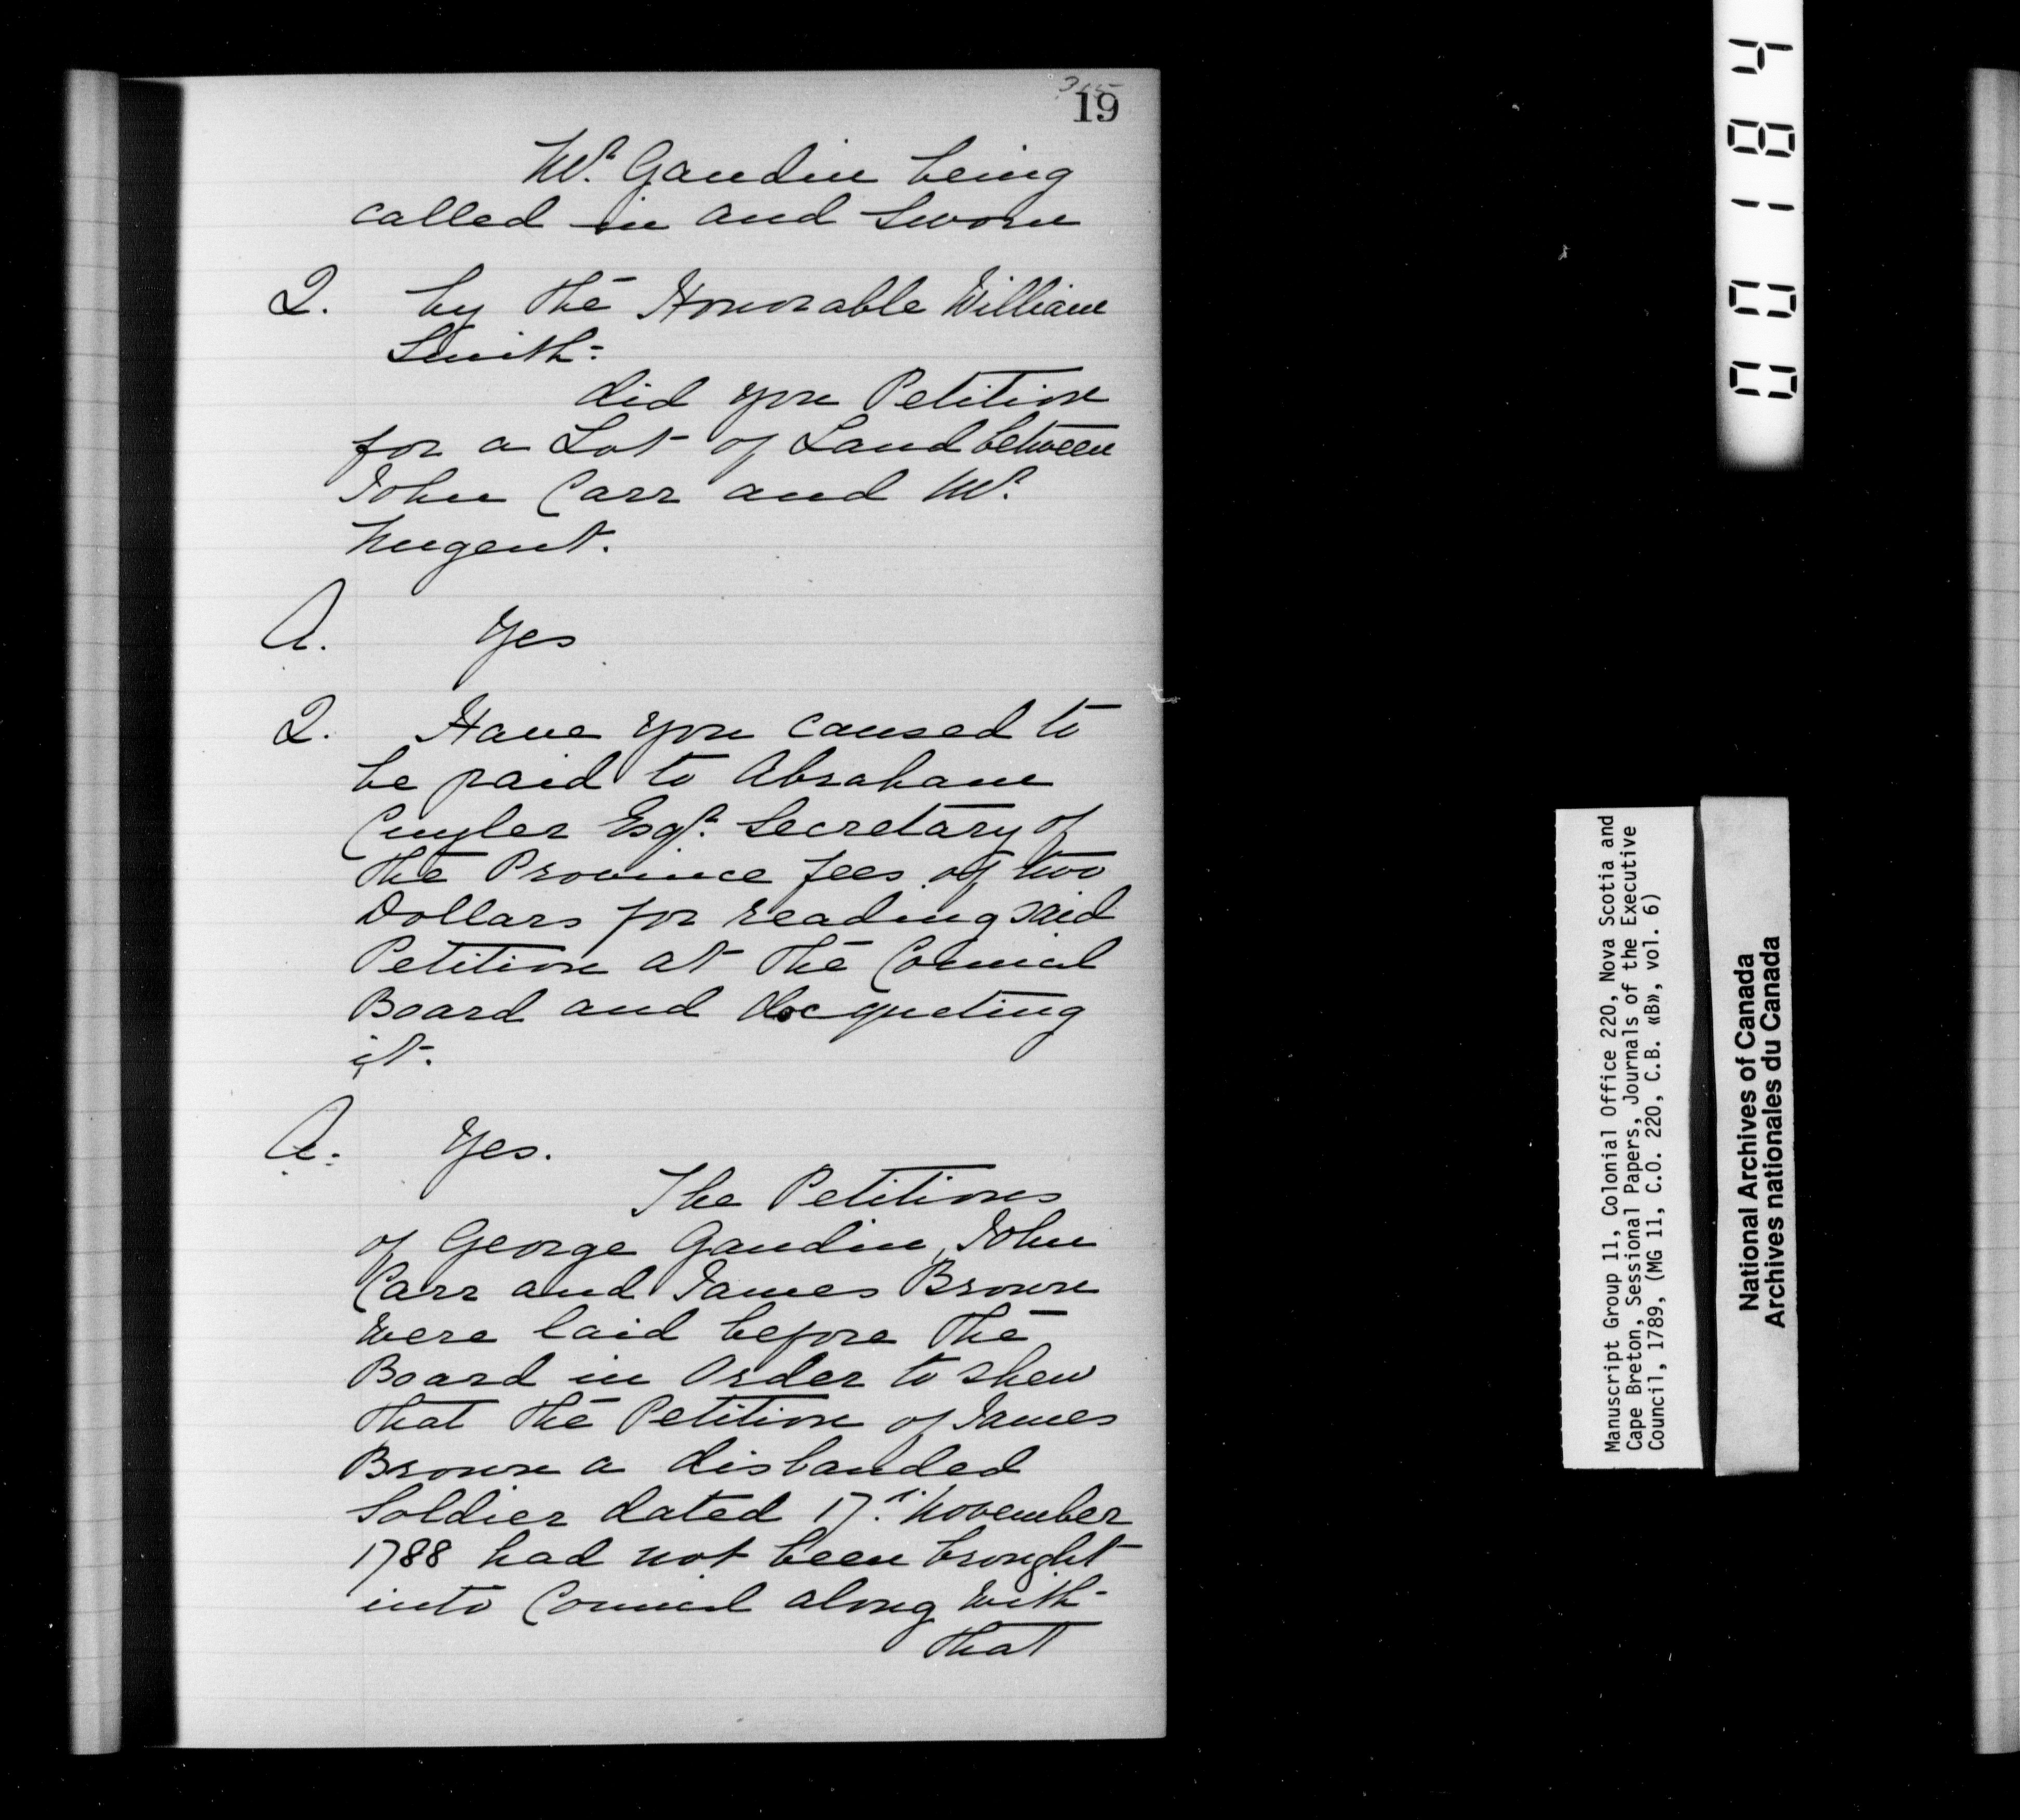 19
Mr. Gaudin being
called in and sworn
Q. by the Honorable William
Smith-
did you Petition
for a Lot of Land between
John Carr and Mr.
Nugent.
A. Yes
Q. Have you caused to
be paid to Abraham
Cuyler Esqr. Secretary of
the Province fees of two
Dollars for reading said
Petition at the Council
Board and docqueting
it.
A. Yes.
The Petitions
of George Gaudin, John
Carr and James Brown
were laid before the
Board in Order to shew
that the Petition of James
Brown a disbanded
Soldier dated 17th November
1788 had not been brought
into Council along with
that
001184
Manuscript Group 11, Colonial Office 220, Nova Scotia and
Cape Breton, Sessional Papers, Journals of the Executive
Council, 1789, (MG 11, C.O. 220, C.B. «B», vol. 6)
National Archives of Canada
Archives nationales du Canada